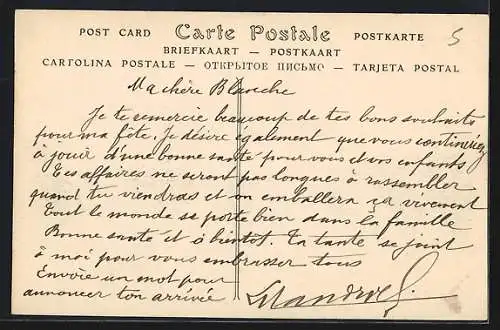 POST CARD Carte Postale POSTKARTE 5
BRIEFKAART — POSTKAART
CARTOLINA POSTALE — ОТКРЫТОЕ ПИСЬМО — TARJETA POSTAL
Ma chère Blanche
Je te remercie beaucoup de tes bons souhaits
pour ma fête, je désire également que vous continuiez
à jouir d'une bonne santé pour vous et vos enfants
Tes affaires ne seront pas longues à rassembler
quand tu viendras et on emballera ça vivement
Tout le monde se porte bien dans la famille
Bonne santé et à bientôt. Ta tante se joint
à moi pour vous embrasser tous
Envoie un mot pour
annoncer ton arrivée